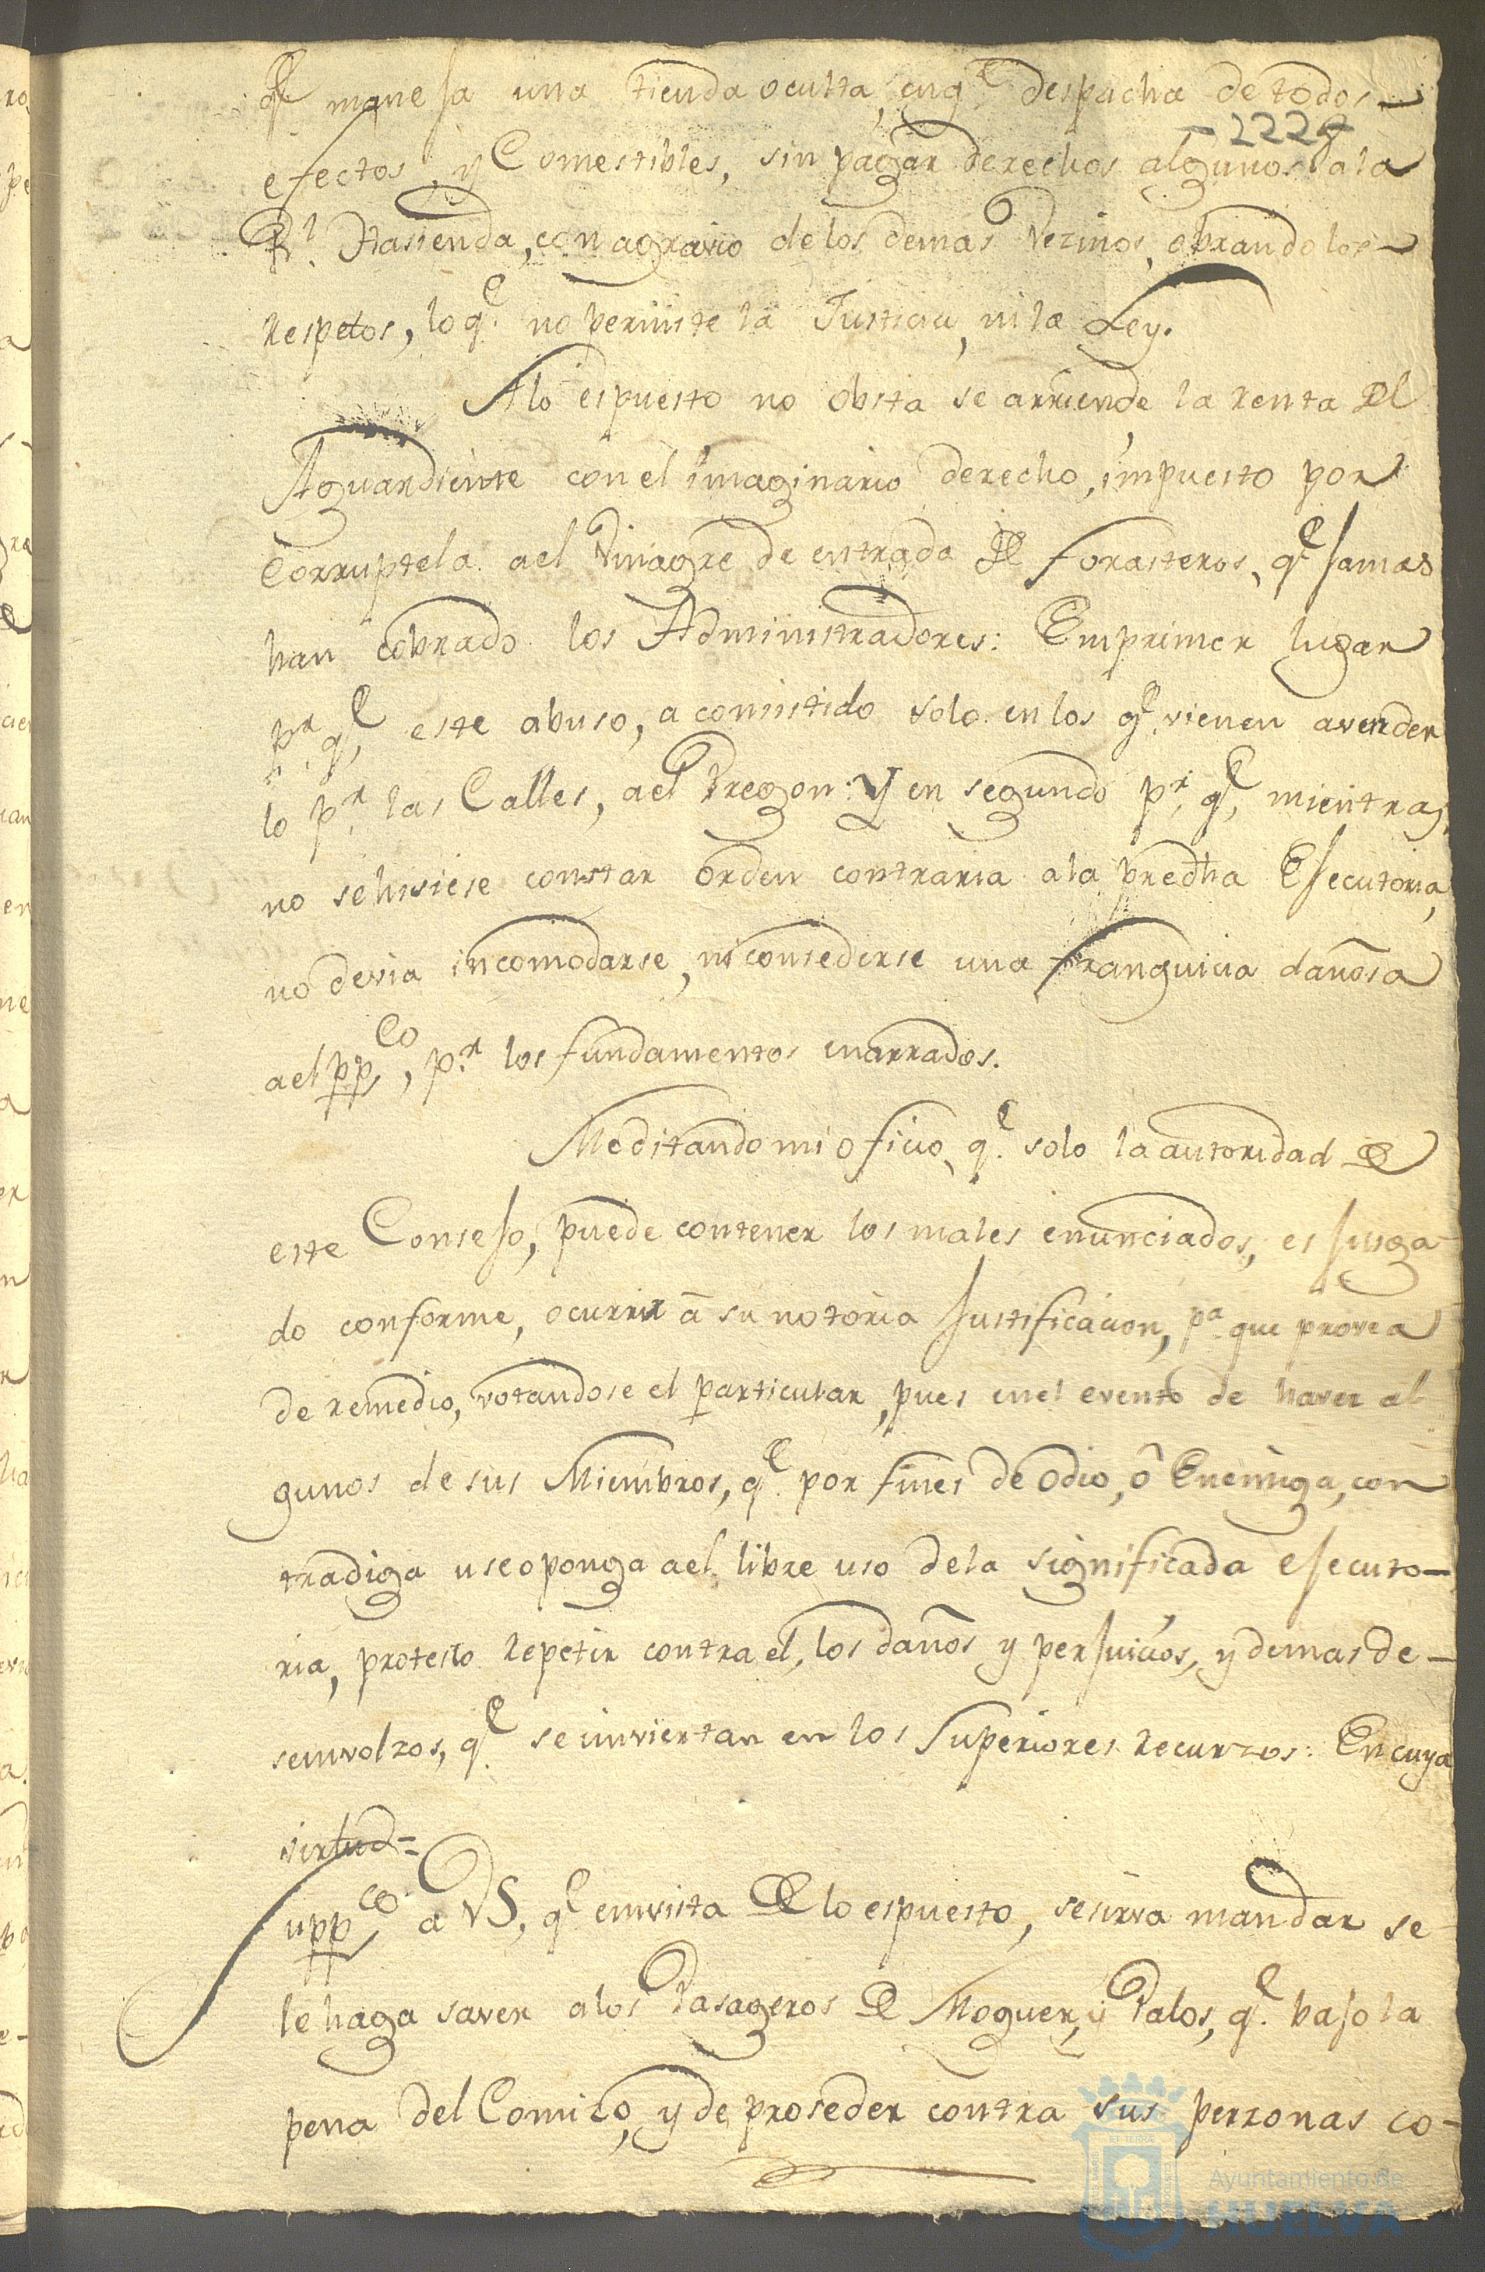 q.e maneja una tienda oculta, en q.e despacha de todos
- 222 -
efectos, y Comestibles, sin pagar derechos algunos a la
R.l Hasienda, con agravio de los demas Vezinos, obrando los
respetos, lo q.e no permite la Justicia, ni la Ley.
A lo espuesto no obsta se arriende la renta del
Aguardiente con el imaginario derecho, impuesto por
Corruptela ael Vinagre de entrada de forasteros, q.e jamas
han cobrado los Administradores: Emprimer lugar
p.r q.e este abuso, a consistido solo en los q.e vienen avender
lo p.r las Calles, ael Pregon: Y en segundo p.r q.e mientras
no sehisiese constar orden contraria ala predha Ejecutoria,
no devia incomodarse, ni consederse una franquicia dañosa
ael pp.co, p.r los fundamentos enarrados.
Meditando mi oficio, q.e solo la autoridad de
este Consejo, puede contener los males enunciados, es jusga
do conforme, ocurrir â su notoria justificacion, p.a que provea
de remedio, votandose el particular, pues enel evento de haver al
gunos de sus Miembros, q.e por fines de odio, ô Enemiga, con
tradiga u se oponga ael libre uso dela significada ejecuto-
ria, protesto repetir contra el, los daños y perjuicios, y demas de-
semvolzos, q.e se inviertan en los Superiores recurzos: En cuya
virtud=
Supp.co a VS, q.e en vista de lo espuesto, se sirva mandar se
le haga saver alos Pasageros de Moguer, y Palos, q.e bajo la
pena del Comizo, y de proseder contra sus perzonas co-
Ayuntamiento de
HUELVA